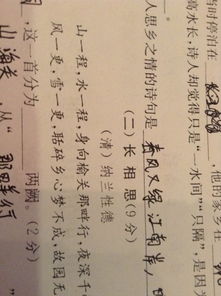 当时停泊在 他的家乡在
高水长,诗人却觉得只是“一水间”“只隔”,是因
人思乡之情的诗句是 春风又绿江南岸,
(二)长相思(9分)
(清)纳兰性德
山一程,水一程,身向榆关那畔行,夜深千
风一更,雪一更,聒碎乡心梦不成,故园无
,这一首分为 两阕。(2分)
山海关,从“那畔行